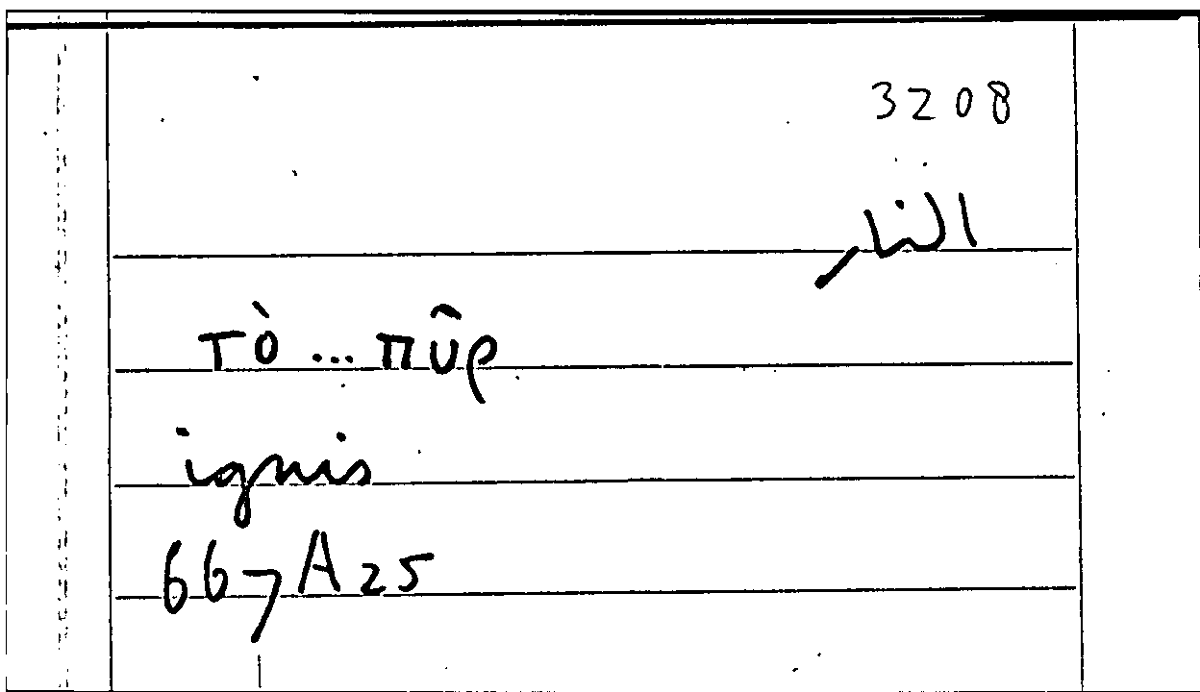 3208
النار
τὸ ... πῦρ
ignis
667 A 25